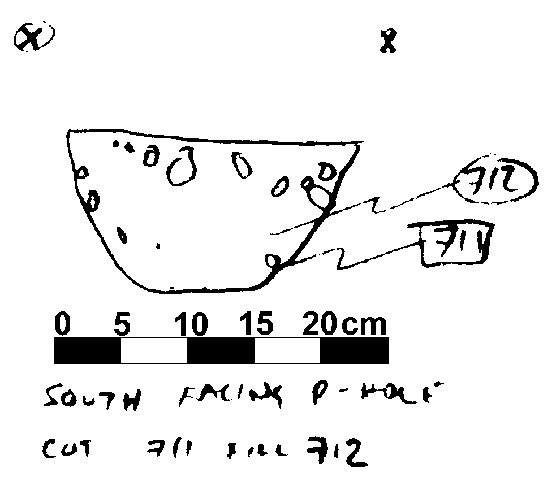 X X
712
711
0 5 10 15 20cm
SOUTH FACING P-HOLE
CUT 711 FILL 712